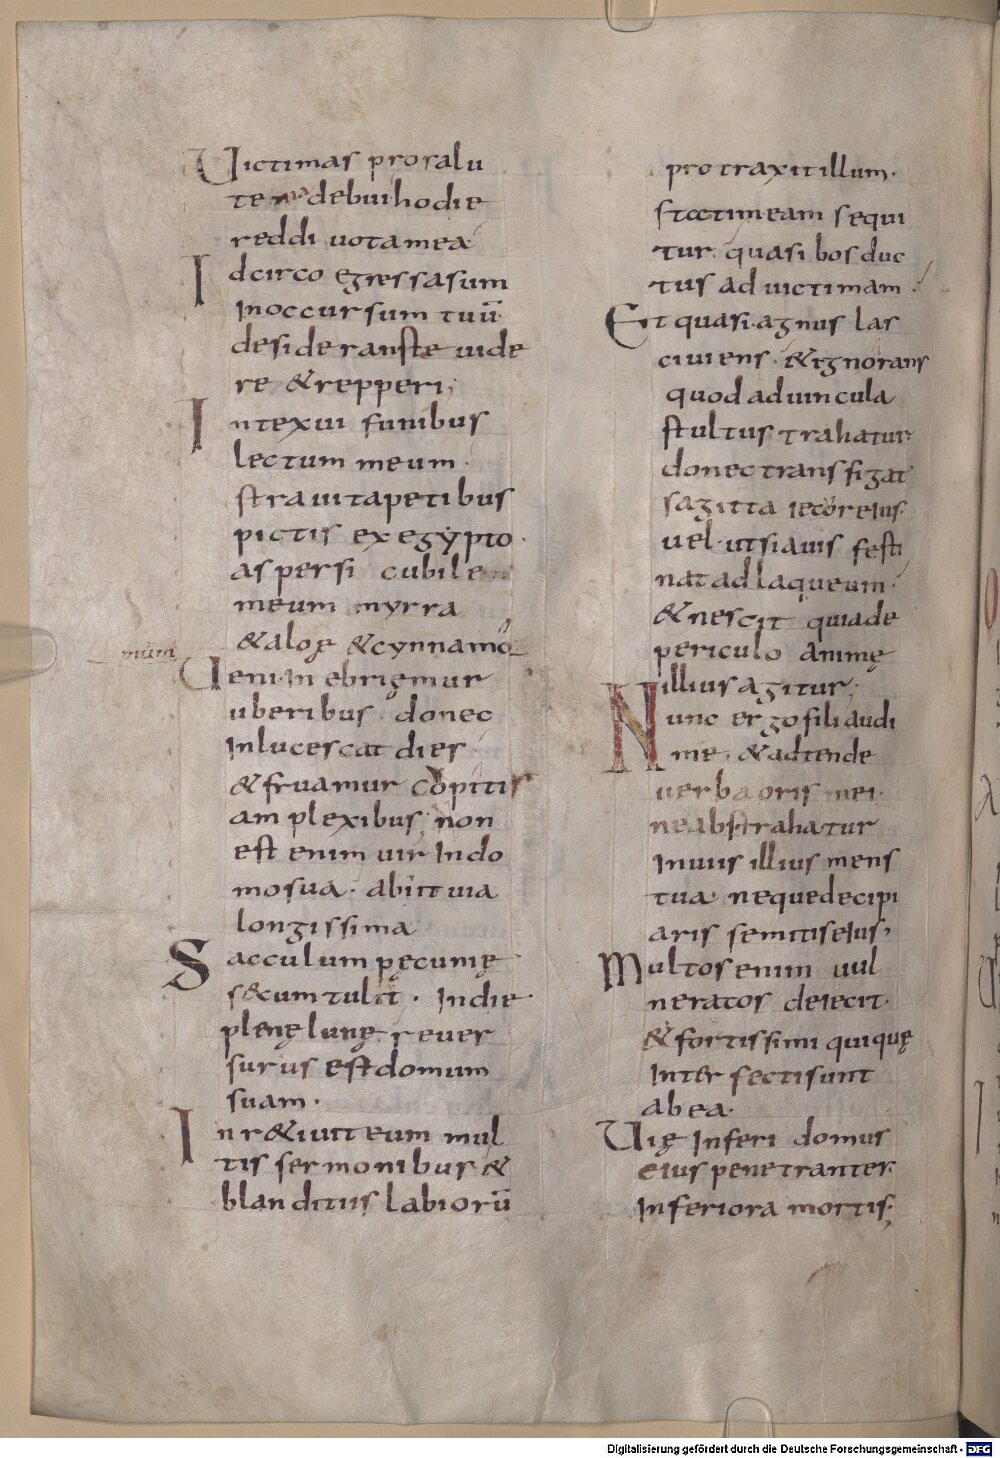 Uictimas pro salu
te mea debui hodie
reddi uota mea
Idcirco egressa sum
in occursum tuū
desiderans te uide
re & repperi;
Intexui funibus
lectum meum.
straui tapetibus
pictis ex egypto.
aspersi cubile
meum myrra
& aloę & cynnamo
mum
Ueni inebriemur
uberibus donec
inlucescat dies
& fruamur copitis
amplexibus; non
est enim uir in do
mo sua. abiit uia
longissima
Sacculum pęcunię
s&cum tulit. In die
plenę lunę reuer
surus est domum
suam.
Inr&iuit eum mul
tis sermonibus &
blanditiis labiorū
protraxit illum.
statim eam sequi
tur quasi bos duc
tus ad uictimam.
Et quasi agnus las
ciuiens. & ignorans
quod ad uincula
stultus trahatur
donec transfigat
sagitta iecor eius.
uel ut si auis festi
nat ad laqueum.
& nescit quia de
periculo animę
illius agitur;
Nunc ergo fili audi
me. & adtende
uerba oris mei.
ne abstrahatur
in uiis illius mens
tua. neque decipi
aris semitis eius;
Multos enim uul
neratos deiecit.
& fortissimi quiquę
interfecti sunt
ab ea.
Uię inferi domus
eius penetrantes
inferiora mortis;
Digitalisierung gefördert durch die Deutsche Forschungsgemeinschaft - DFG